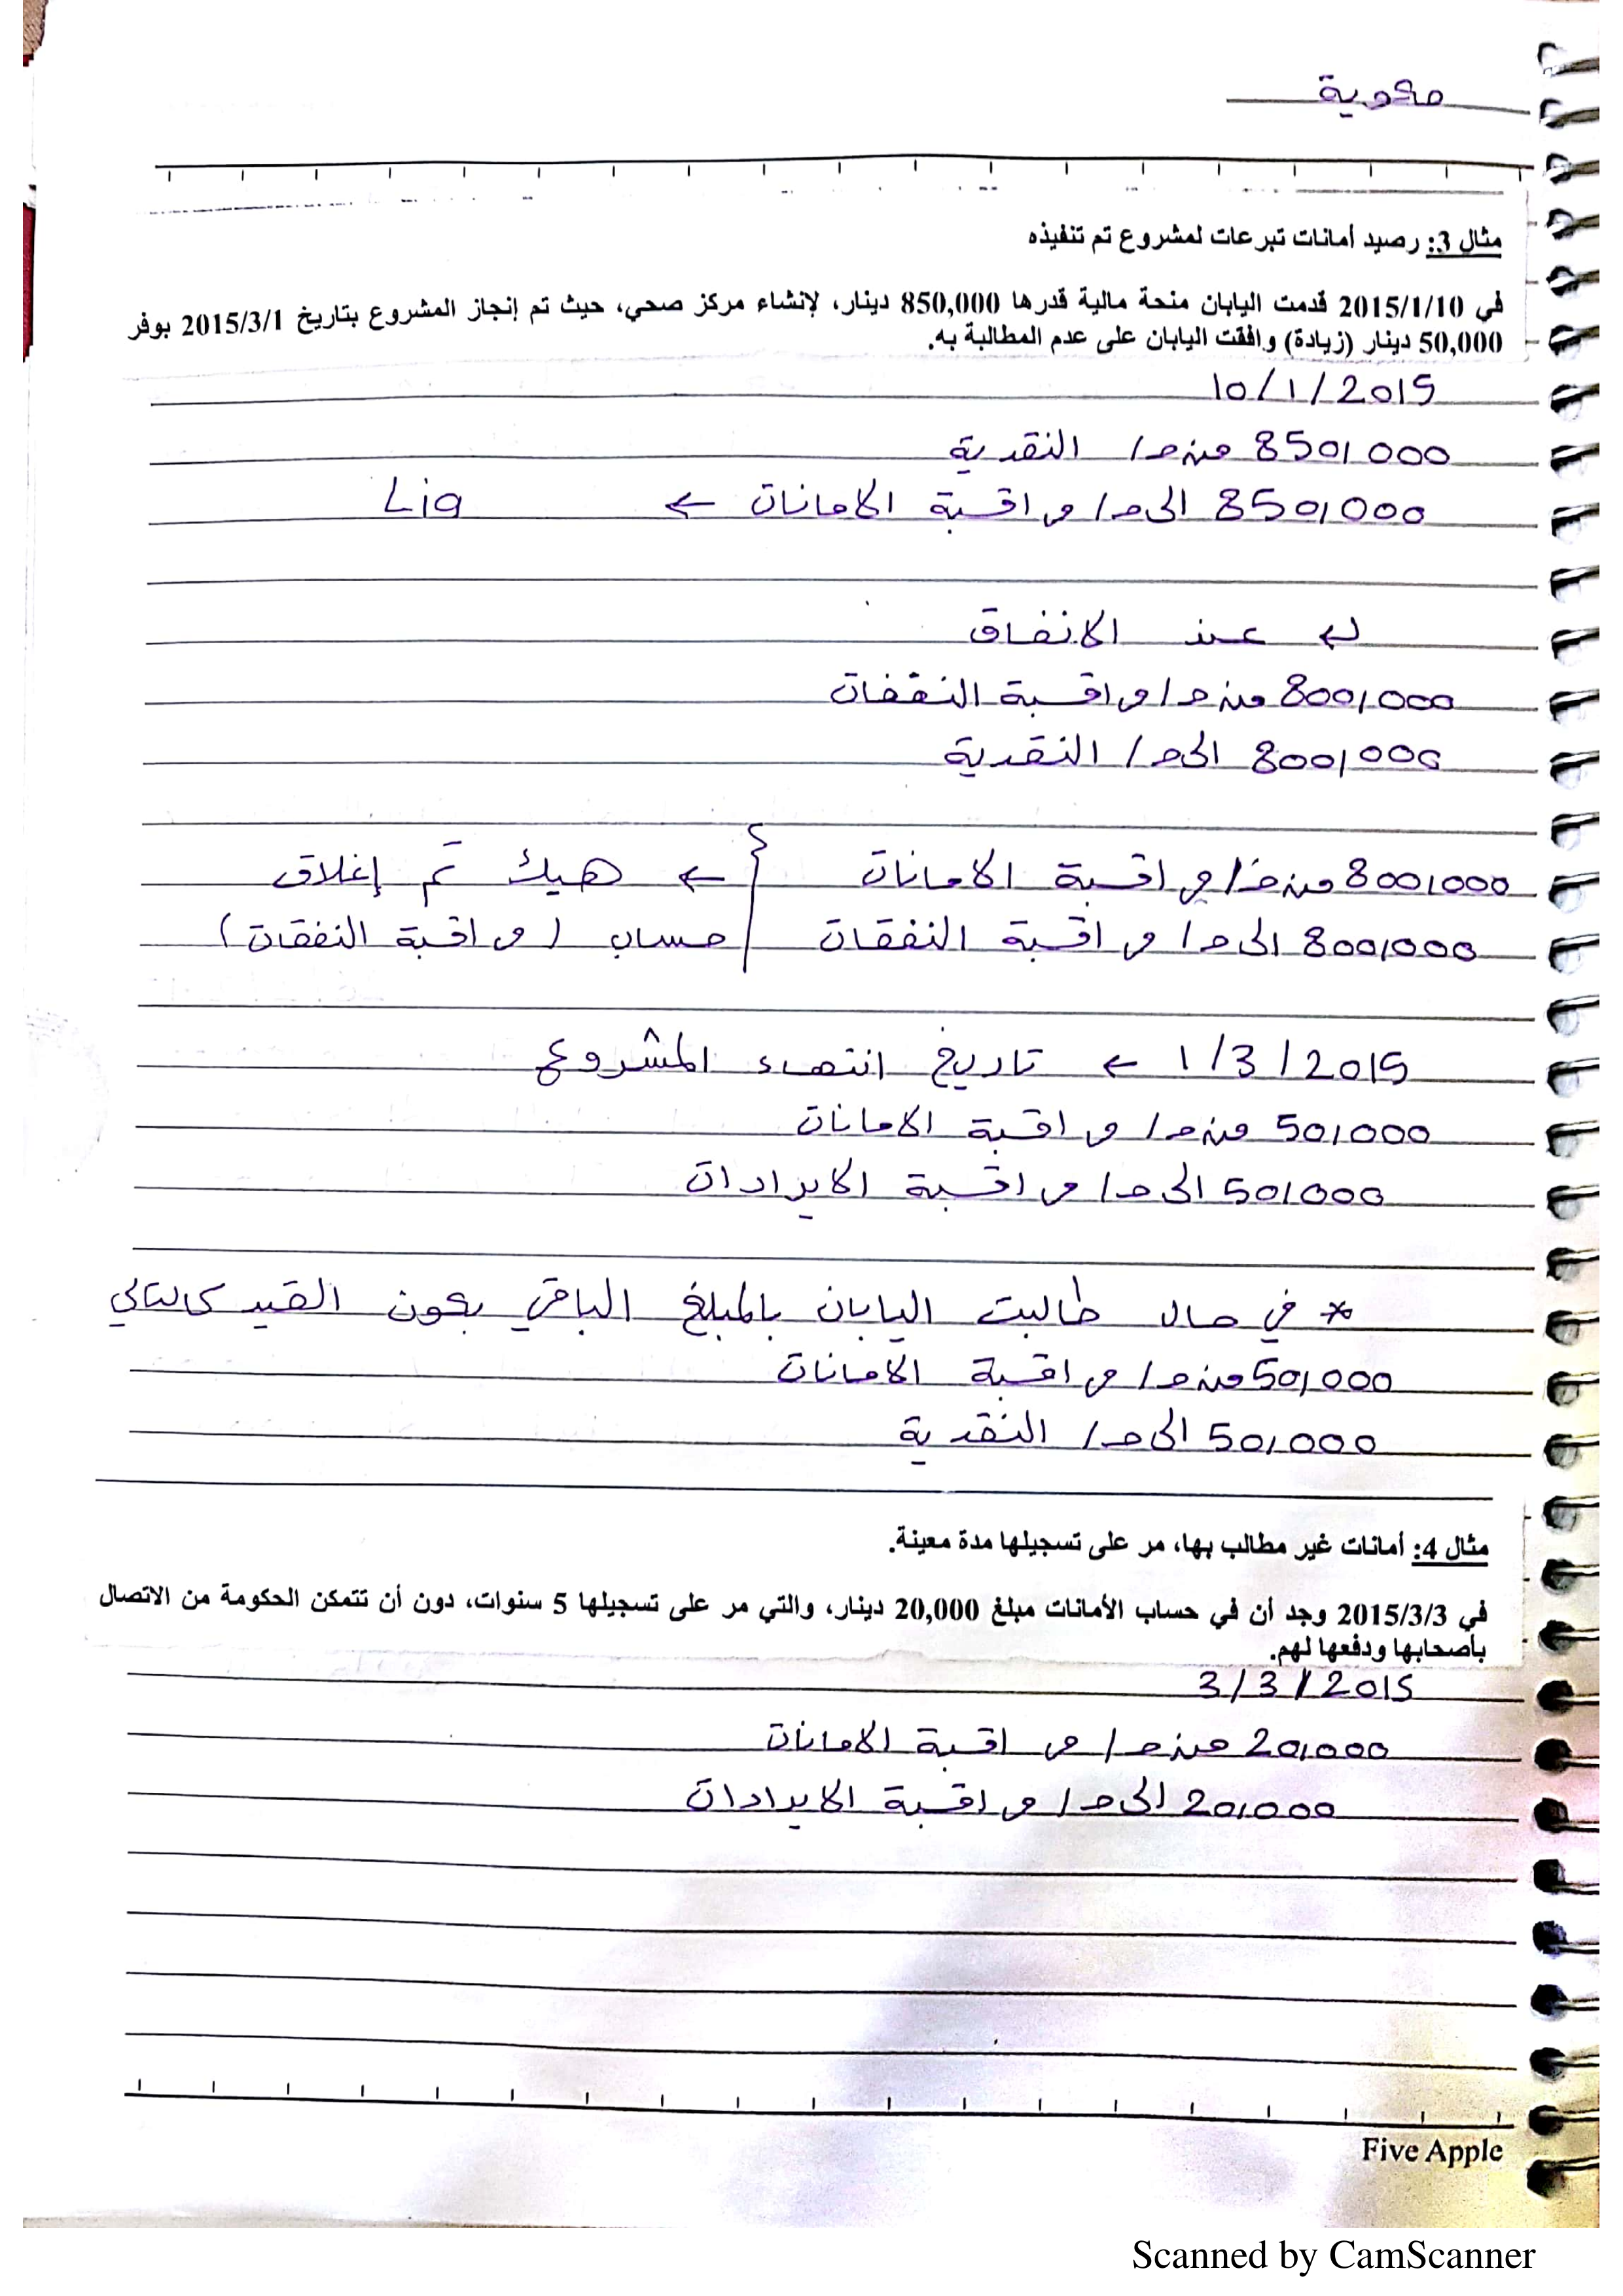 محوية
مثال 3: رصيد أمانات تبرعات لمشروع تم تنفيذه
في 2015/1/10 قدمت اليابان منحة مالية قدرها 850,000 دينار، لإنشاء مركز صحي، حيث تم إنجاز المشروع بتاريخ 2015/3/1 بوفر
50,000 دينار (زيادة) وافقت اليابان على عدم المطالبة به.
10/1/2015
850,000 من ح/ النقدية
850,000 الى ح/ مراقبة الامانات ← Lia
عند الانفاق
800,000 من ح/ مراقبة النفقات
800,000 الى ح/ النقدية
800,000 من ح/ مراقبة الامانات ← هيك تم إغلاق
800,000 الى ح/ مراقبة النفقات حساب (مراقبة النفقات)
1/3/2015 ← تاريخ انتهاء المشروع
50,000 من ح/ مراقبة الامانات
50,000 الى ح/ مراقبة الايرادات
* في حال طالبت اليابان بالمبلغ الباقي يكون القيد كالتالي
50,000 من ح/ مراقبة الامانات
50,000 الى ح/ النقدية
مثال 4: أمانات غير مطالب بها، مر على تسجيلها مدة معينة.
في 2015/3/3 وجد أن في حساب الأمانات مبلغ 20,000 دينار، والتي مر على تسجيلها 5 سنوات، دون أن تتمكن الحكومة من الاتصال
بأصحابها ودفعها لهم.
3/3/2015
20,000 من ح/ مراقبة الامانات
20,000 الى ح/ مراقبة الايرادات
Five Apple
Scanned by CamScanner